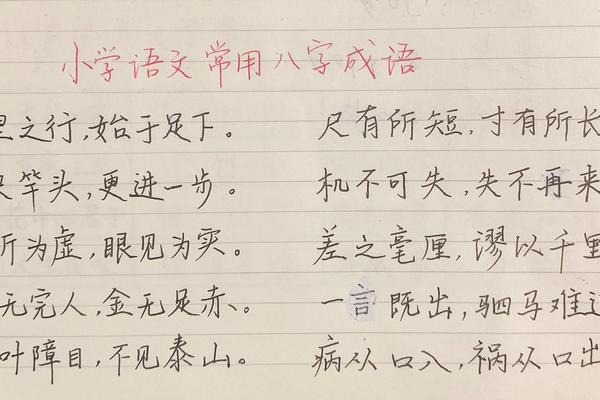 小学语文常用八字成语
里之行,始于足下。 尺有所短,寸有所长
尺竿头,更进一步。 机不可失,失不再来
听为虚,眼见为实。 差之毫厘,谬以千里
无完人,金无足赤。 一言既出,驷马难追
叶障目,不见泰山。 病从口入,祸从口出